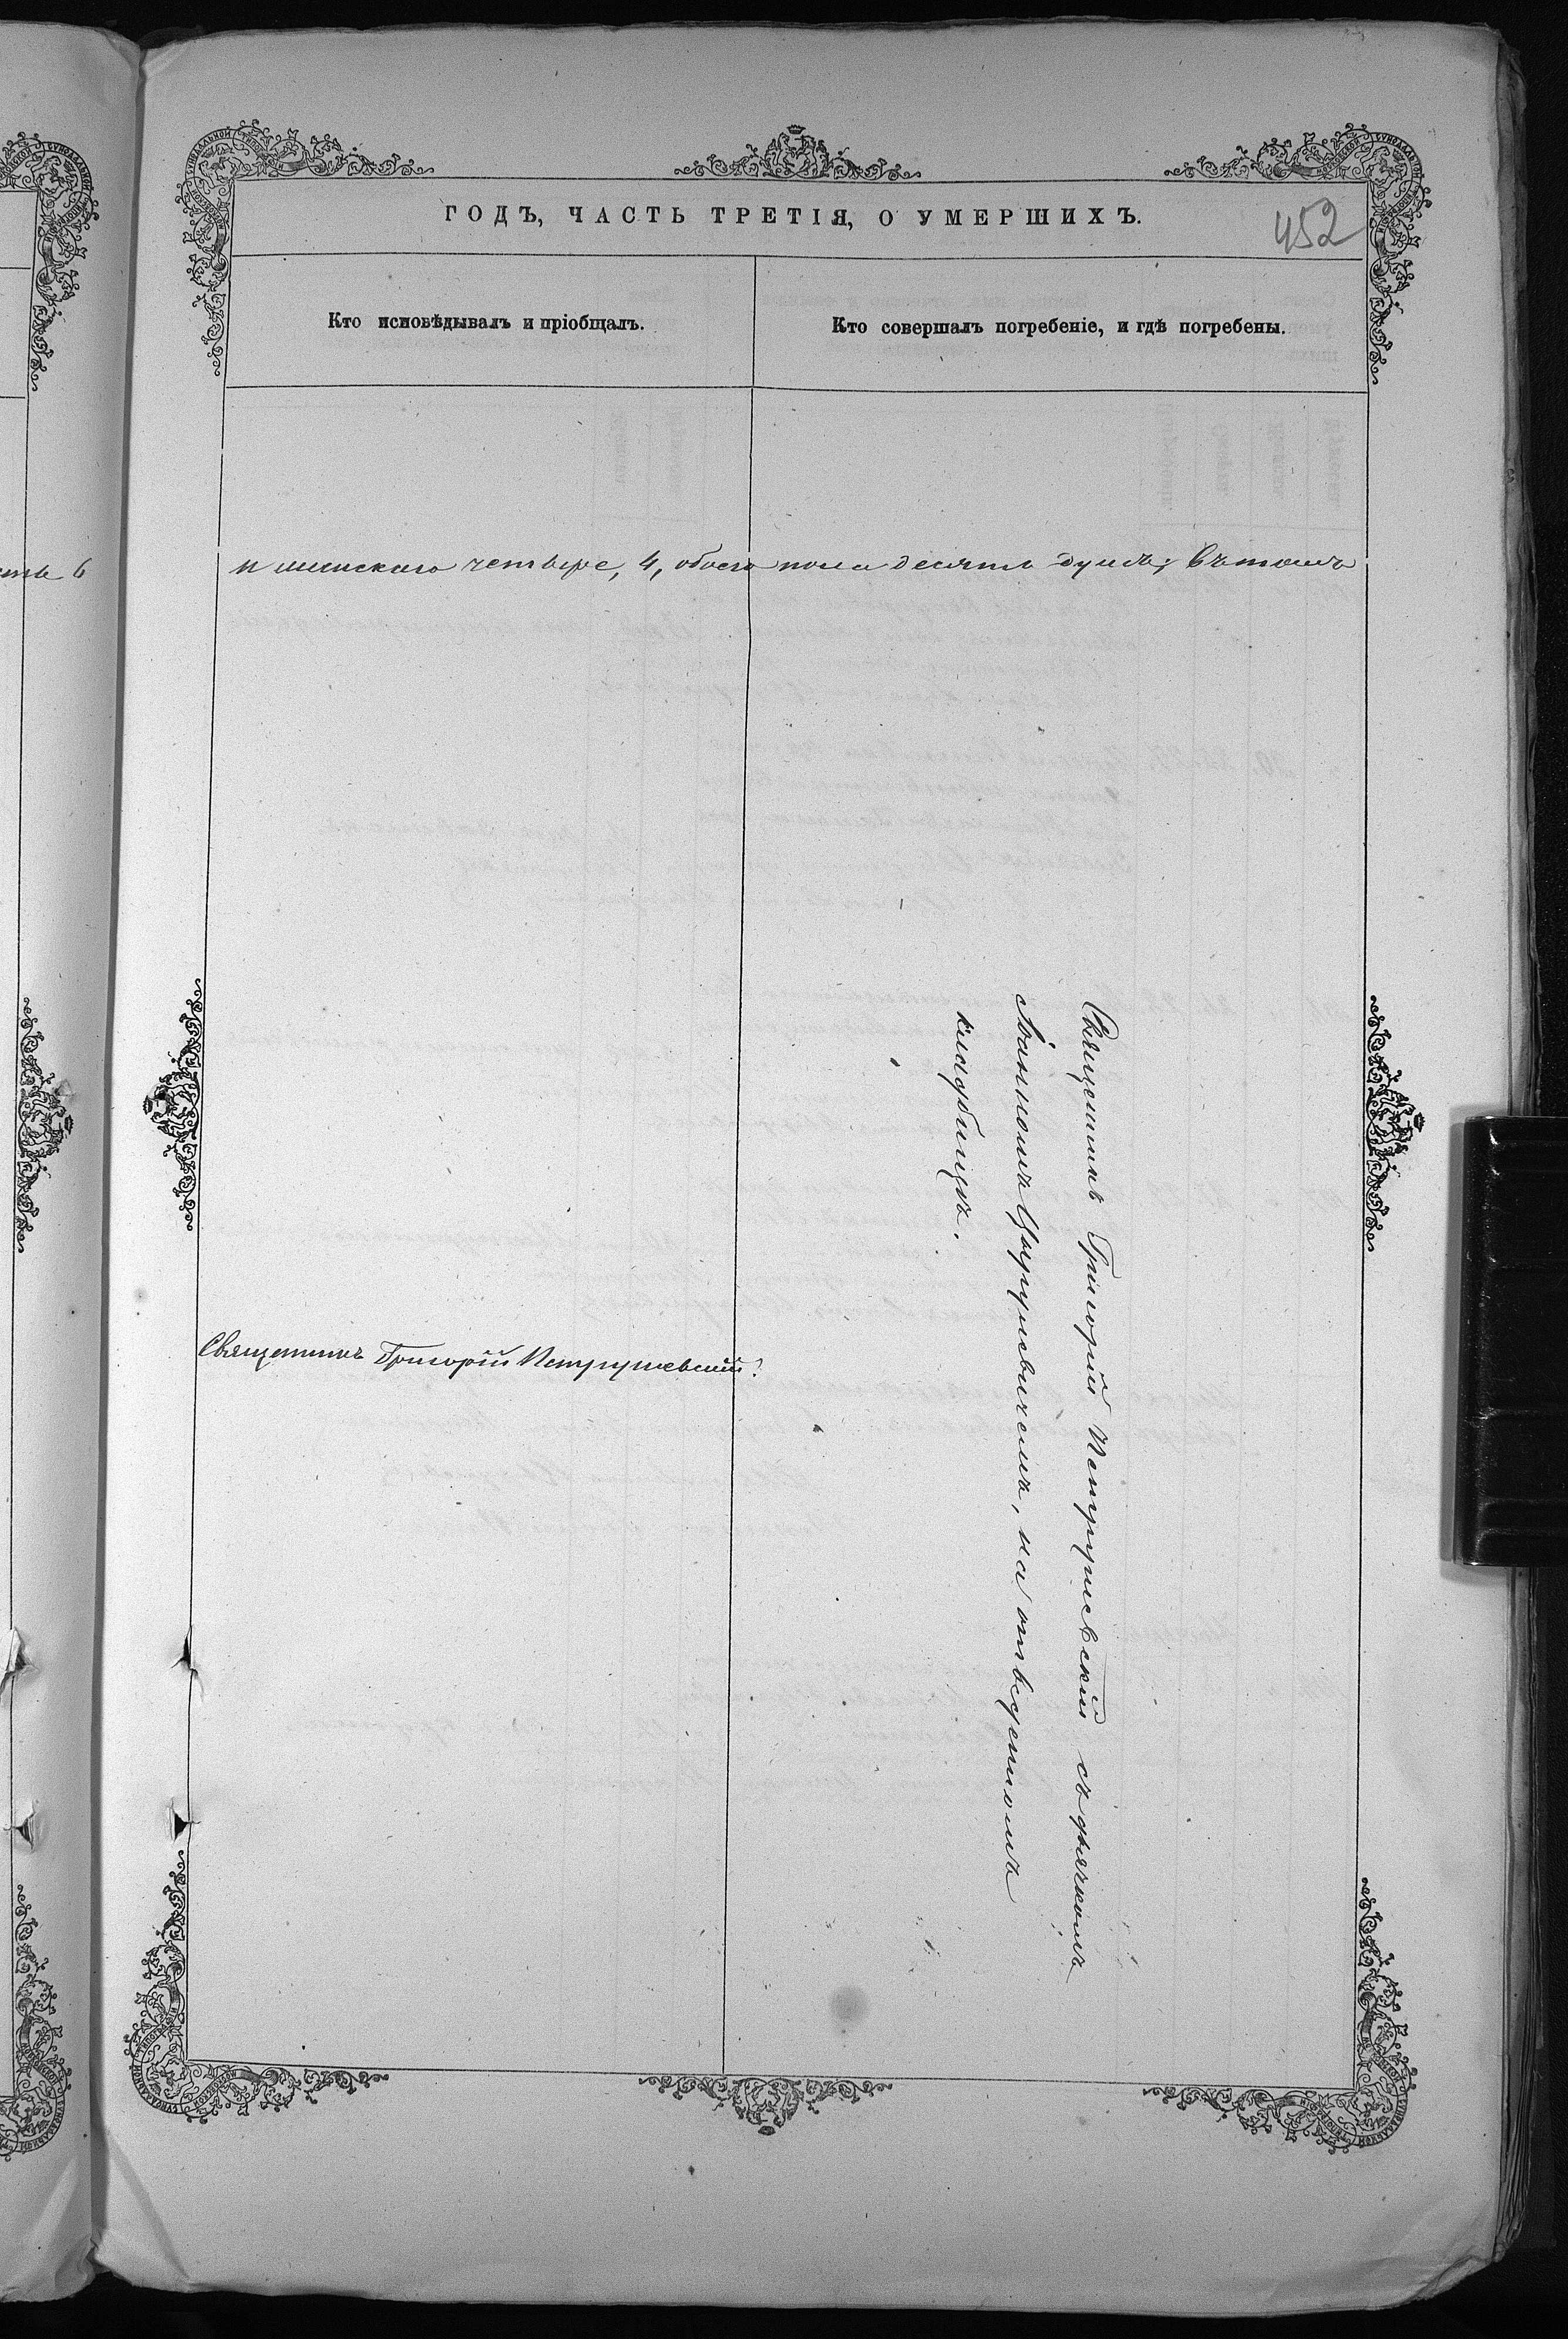 ГОДЪ, ЧАСТЬ ТРЕТІЯ, О УМЕРШИХЪ.
452
Кто исповѣдывалъ и пріобщалъ.
Кто совершалъ погребеніе, и гдѣ погребены.
и женскаго четыре, 4, обоего пола десять душъ; Въ томъ
Священникъ Григорій Петрушевскій
Іоанномъ Цыруневичемъ, на отведенномъ
кладбищѣ.
Священникъ Григорій Петрушевскій съ дьячкомъ